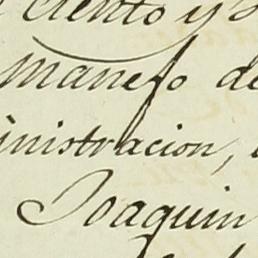 ciento y
manejo de
inistracion,
Joaquin